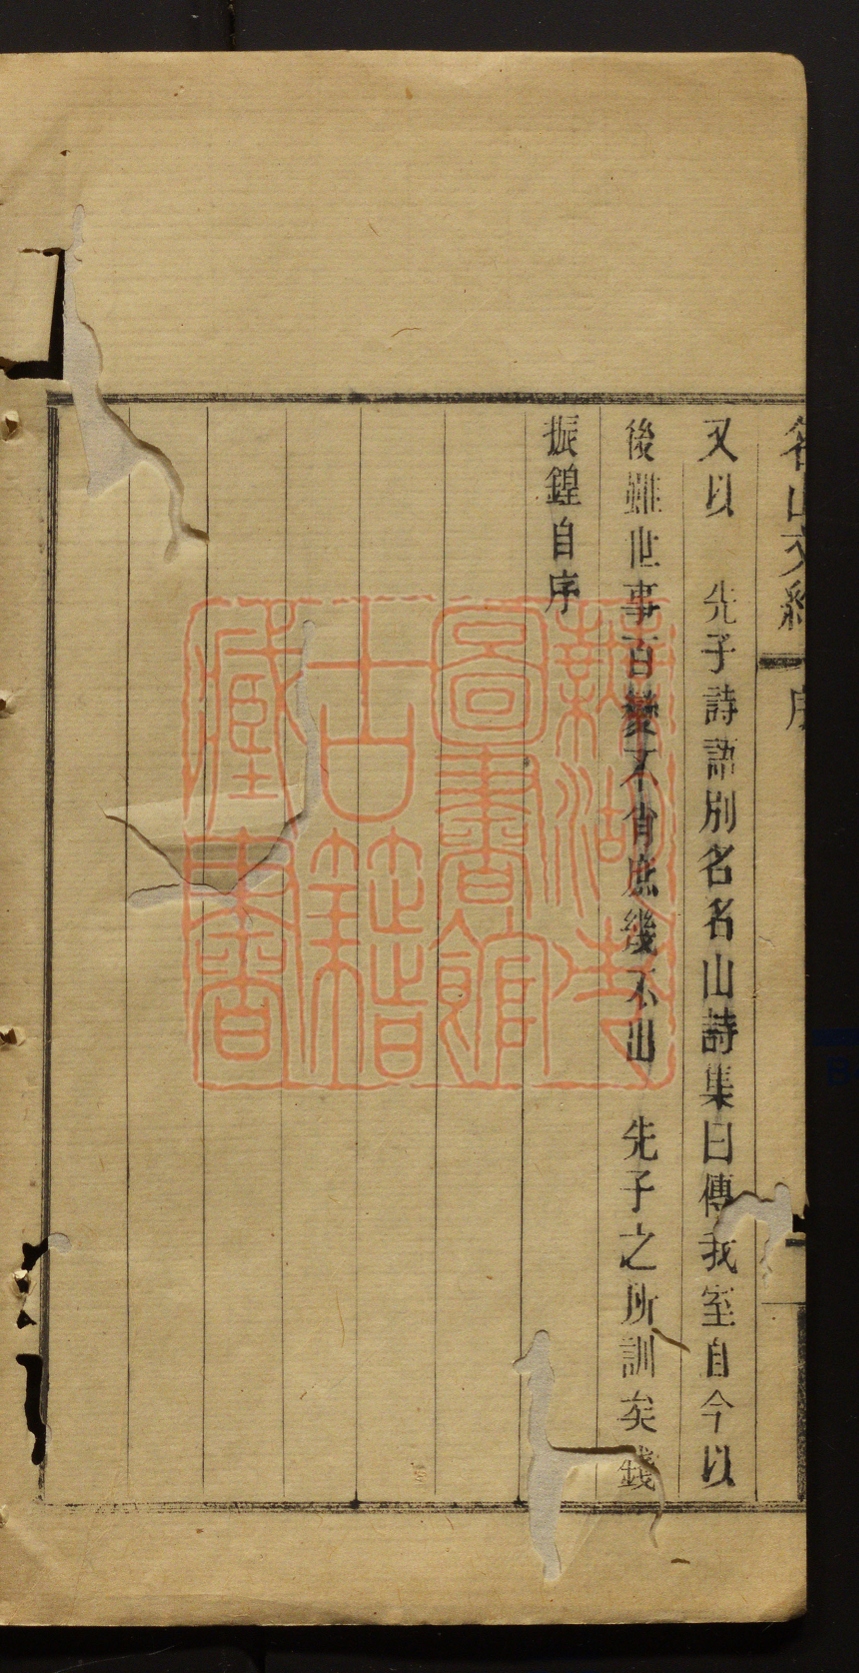 名山文約 序
又以　先子詩語別名名山詩集曰傳我室自今以
後雖世事百變不肖庶幾不出　先子之所訓矣錢
振鍠自序
蕪湖市
圖書館
古籍
藏書